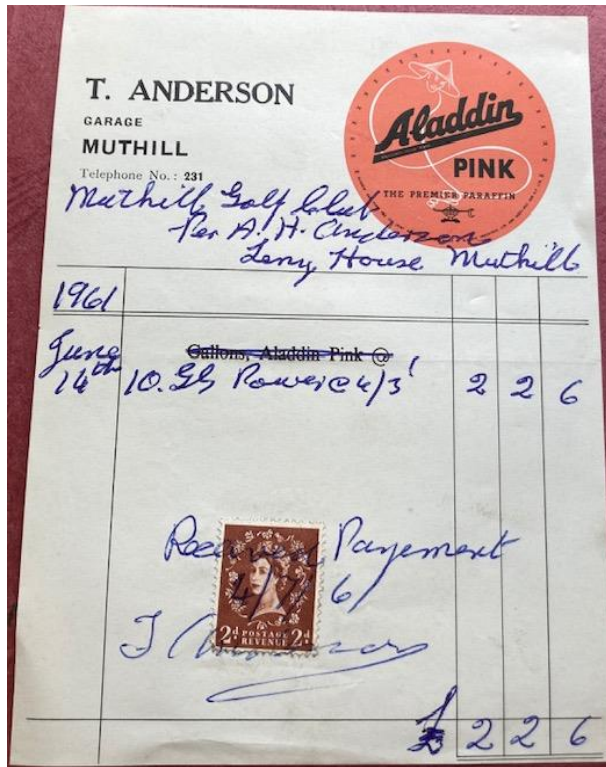 T. ANDERSON
GARAGE
MUTHILL
Telephone No.: 231
Aladdin
PINK
THE PREMIER PARAFFIN
Muthill Golf Club
Per A. H. Anderson
Leny House Muthill
1961
Gallons, Aladdin Pink @
June
14th 10. Gls Power @ 4/3 2 2 6
Received Payement
4/7/61
T Anderson
2d POSTAGE 2d
REVENUE
£ 2 2 6